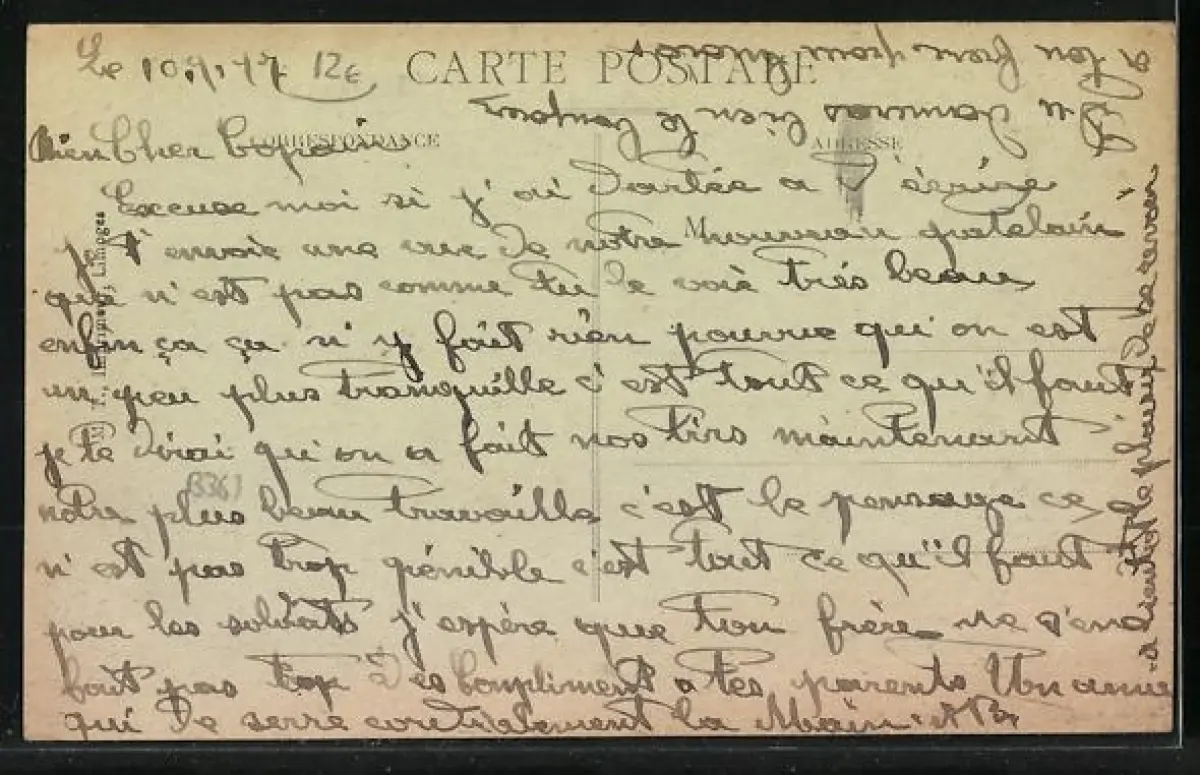 CARTE POSTALE
CORRESPONDANCE
ADRESSE
Le 10, 12c
Bien Cher Copain
Excuse moi si j'ai tardée a t'écrire
je t'envoie une vue de notre nouveau patelain
que n'est pas comme tu le voie très beau
enfin ça ça ni y fait rien pourvue qu'on est
un peu plus tranquille c'est tout ce qu'il faut
je te dirai qu'on a fait nos tirs maintenant
notre plus beau travaille c'est le pansage ce
n'est pas trop pénible c'est tout ce qu'il faut
pour les soldats j'espère que ton frère ne s'en
fait pas trop Des Compliment a tes parents Un amie
qui te serre cordialement la Main
a bientot le plaisir de se revoir
Tu donneras bien le bonjour
a ton frère pour
Limoges